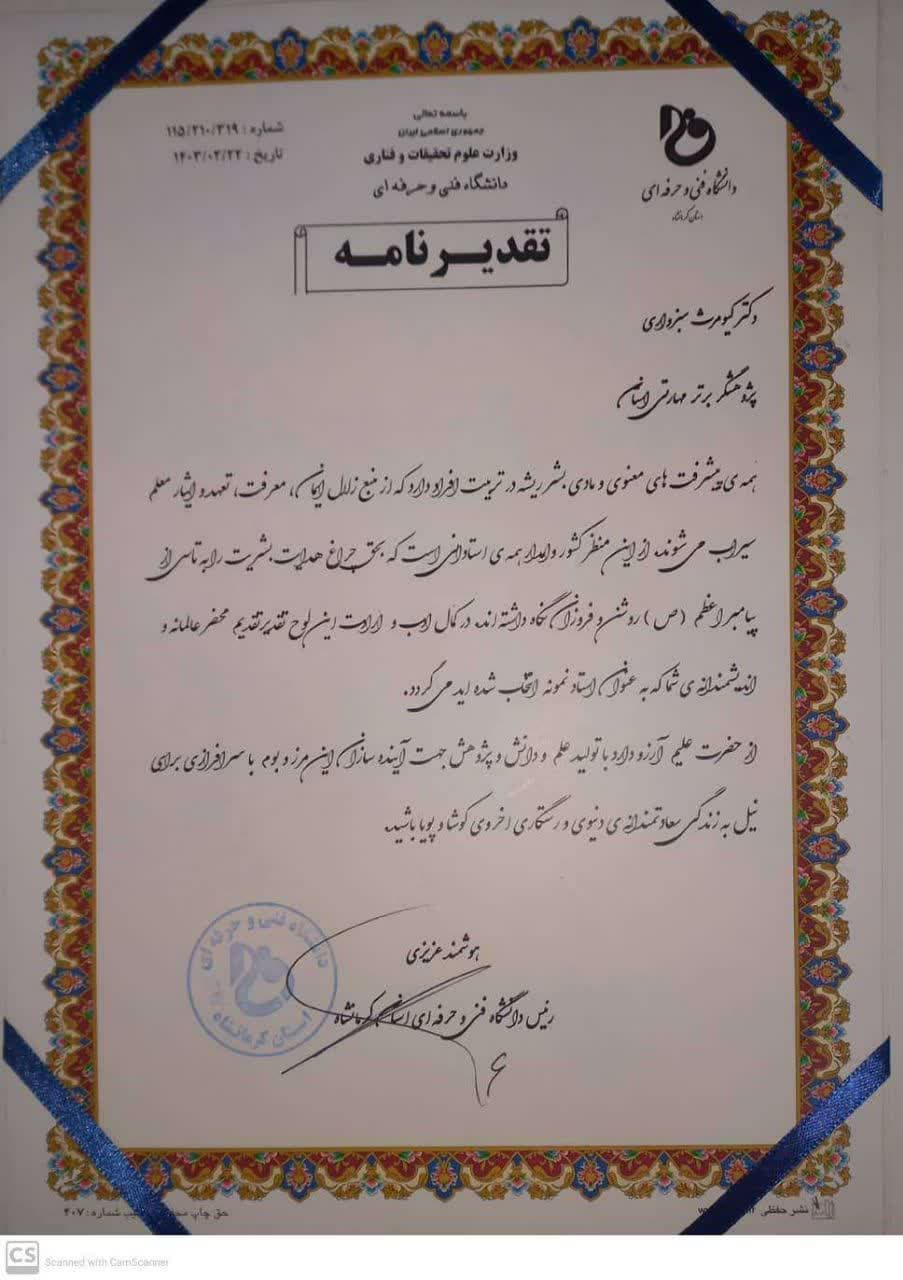 باسمه تعالی
جمهوری اسلامی ایران
وزارت علوم تحقیقات و فناری
دانشگاه فنی و حرفه ای
شماره : ۱۱۵/۲۱۰/۳۱۹
تاریخ : ۱۴۰۳/۰۲/۲۲
دانشگاه فنی و حرفه ای
استان کرمانشاه
تقدیر نامه
دکتر کیومرث سبزواری
پژوهشگر برتر مهارتی استان
همه ی پیشرفت های معنوی و مادی بشر ریشه در تربیت افراد دارد که از منبع زلال ایمان، معرفت، تعهد و ایثار معلم
سیراب می شوند. از این منظر کشور وامدار همه ی استادانی است که بحق چراغ هدایت بشریت را به تاسی از
پیامبر اعظم (ص) روشن و فروزان نگاه داشته اند. در کمال ادب و ارادت این لوح تقدیر تقدیم محضر عالمانه و
اندیشمندانه ی شما که به عنوان استاد نمونه انتخاب شده اید می گردد.
از حضرت علیم آرزو دارد با تولید علم و دانش و پژوهش جهت آینده سازان این مرز و بوم با سرافرازی برای
نیل به زندگی سعادتمندانه ی دنیوی و رستگاری اخروی کوشا و پویا باشید.
هوشمند عزیزی
رئیس دانشگاه فنی و حرفه ای استان کرمانشاه
دانشگاه فنی و حرفه ای
استان کرمانشاه
نشر حفظی
حق چاپ
شماره : ۴۰۷
CS
Scanned with CamScanner